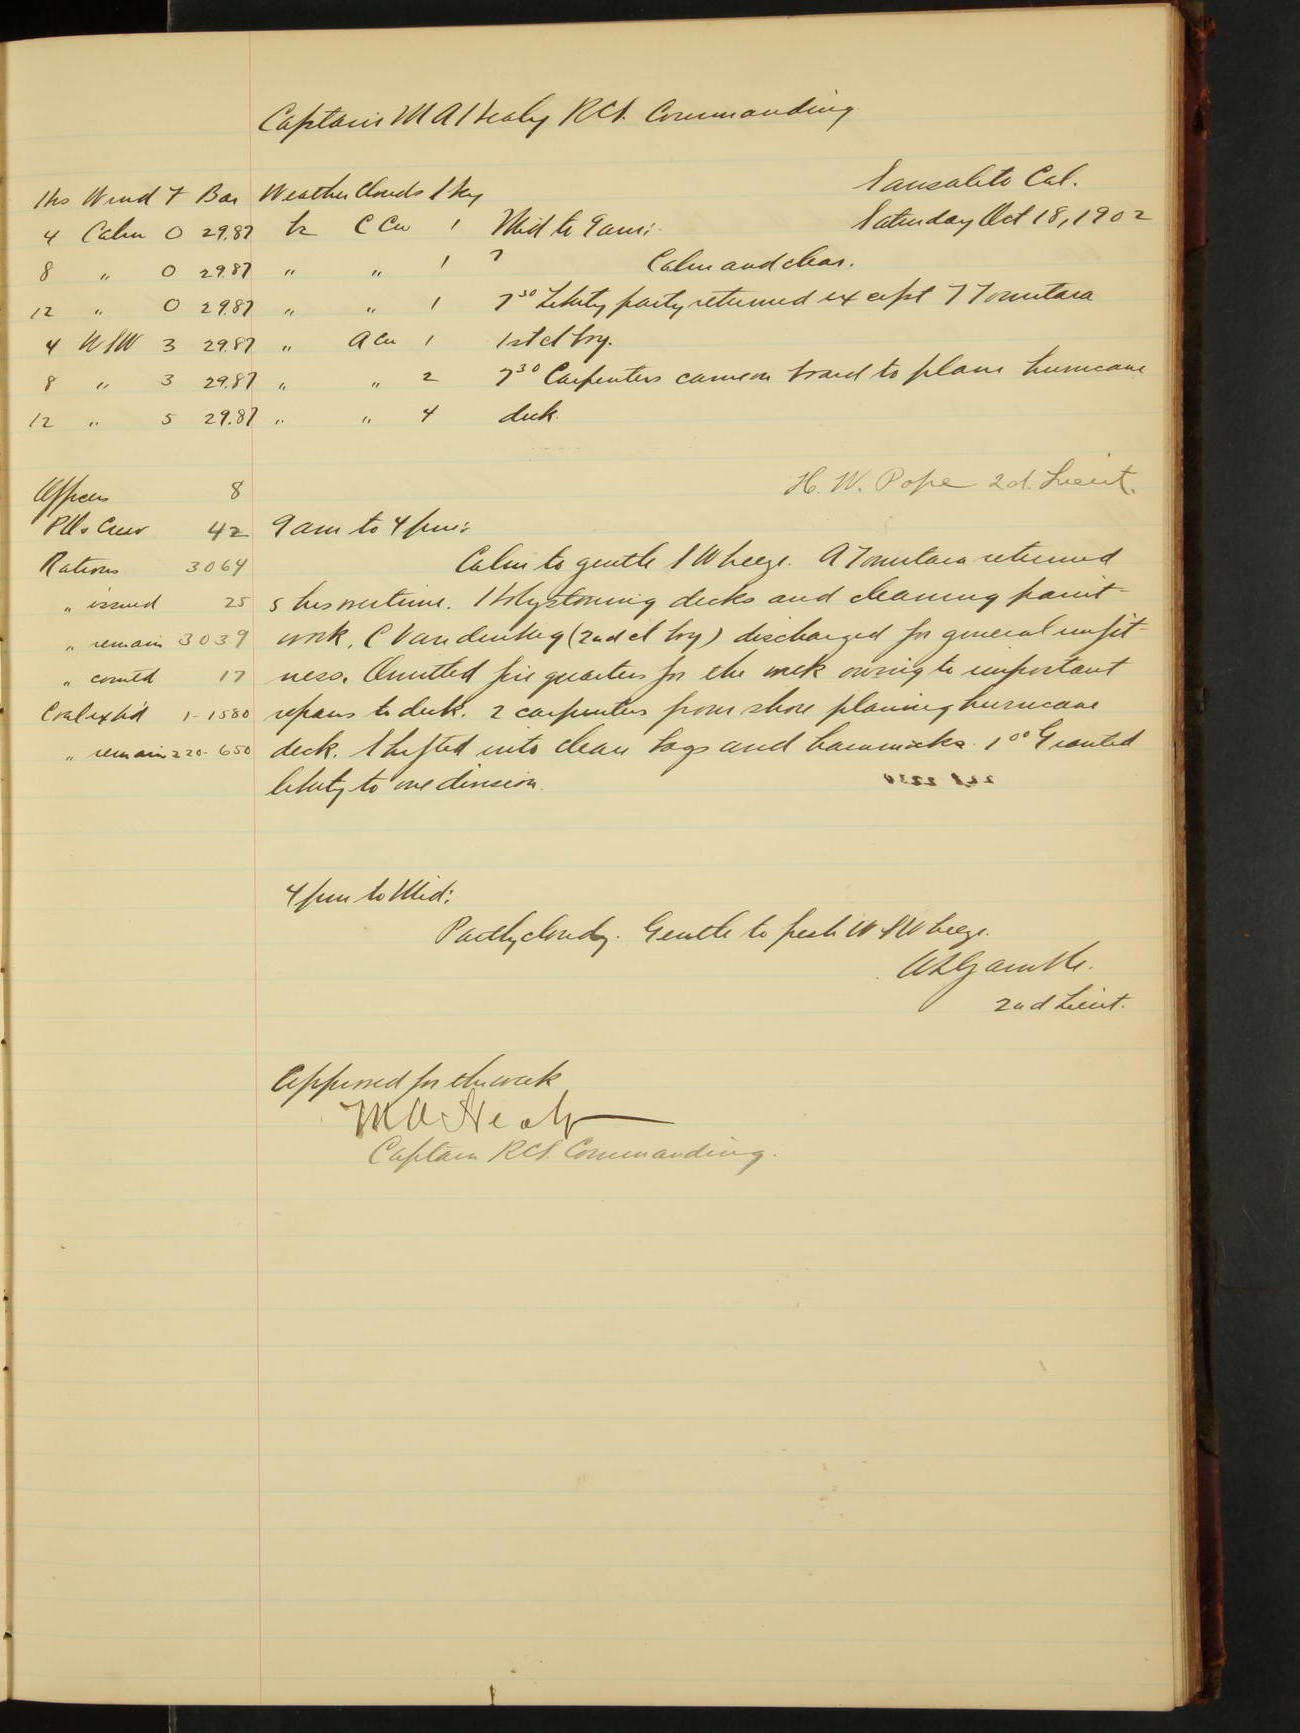 Captain M A Healy RCS. Commanding
Sausalito Cal.
Hrs Wind F Bar Weather Clouds Sky
Saturday Oct 18, 1902
4 Calm 0 29.87 bz C Cu 1 Mid to 9 am:
8 " 0 29.87 " " 1 Calm and clear.
12 " 0 29.87 " " 1 7 30 Liberty party returned except T Tomitara
4 WSW 3 29.87 " A Cu 1 1st cl boy.
8 " 3 29.87 " " 2 7 30 Carpenters came on board to plane hurricane
12 " 5 29.87 " " 4 deck.
H. W. Pope 2d. Lieut.
Officers 8
P.O's Crew 42 9 am to 4 pm:
Rations 3064 Calm to gentle SW breeze. A Tomitara returned
" issued 25 5 hrs overtime. Holystoning decks and cleaning paint-
" remain 3039 work. C Vandenberg (2nd cl boy) discharged for general unfit-
" comtd 17 ness. Omitted fire quarters for the week owing to important
Coal exp'd 1-1580 repairs to deck. 2 carpenters from shore planing hurricane
" remain 220-650 deck. Shifted into clean bags and hammocks. 1 00 Granted
liberty to one division.
4 pm to Mid:
Partly cloudy. Gentle to fresh WSW breeze.
A L Gamble.
2nd Lieut.
Approved for the week
M A Healy
Captain RCS. Commanding.